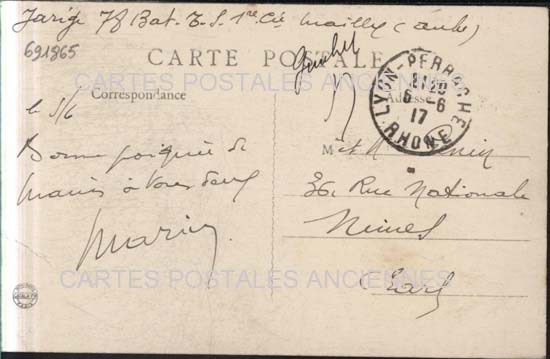 Jarige 78 Bat. T. S. 1re Cie Mailly (Aube)
691865
CARTE POSTALE
Guichet
CARTES POSTALES ANCIENNES
Correspondance
Adresse
LYON-PERRACHE
21 20
6 -6
17
RHONE
le 5/6
Bonne poignée de
mains à vous deux
Marin
M et M
36, Rue Nationale
Nimes
Gard
CARTES POSTALES ANCIENNES